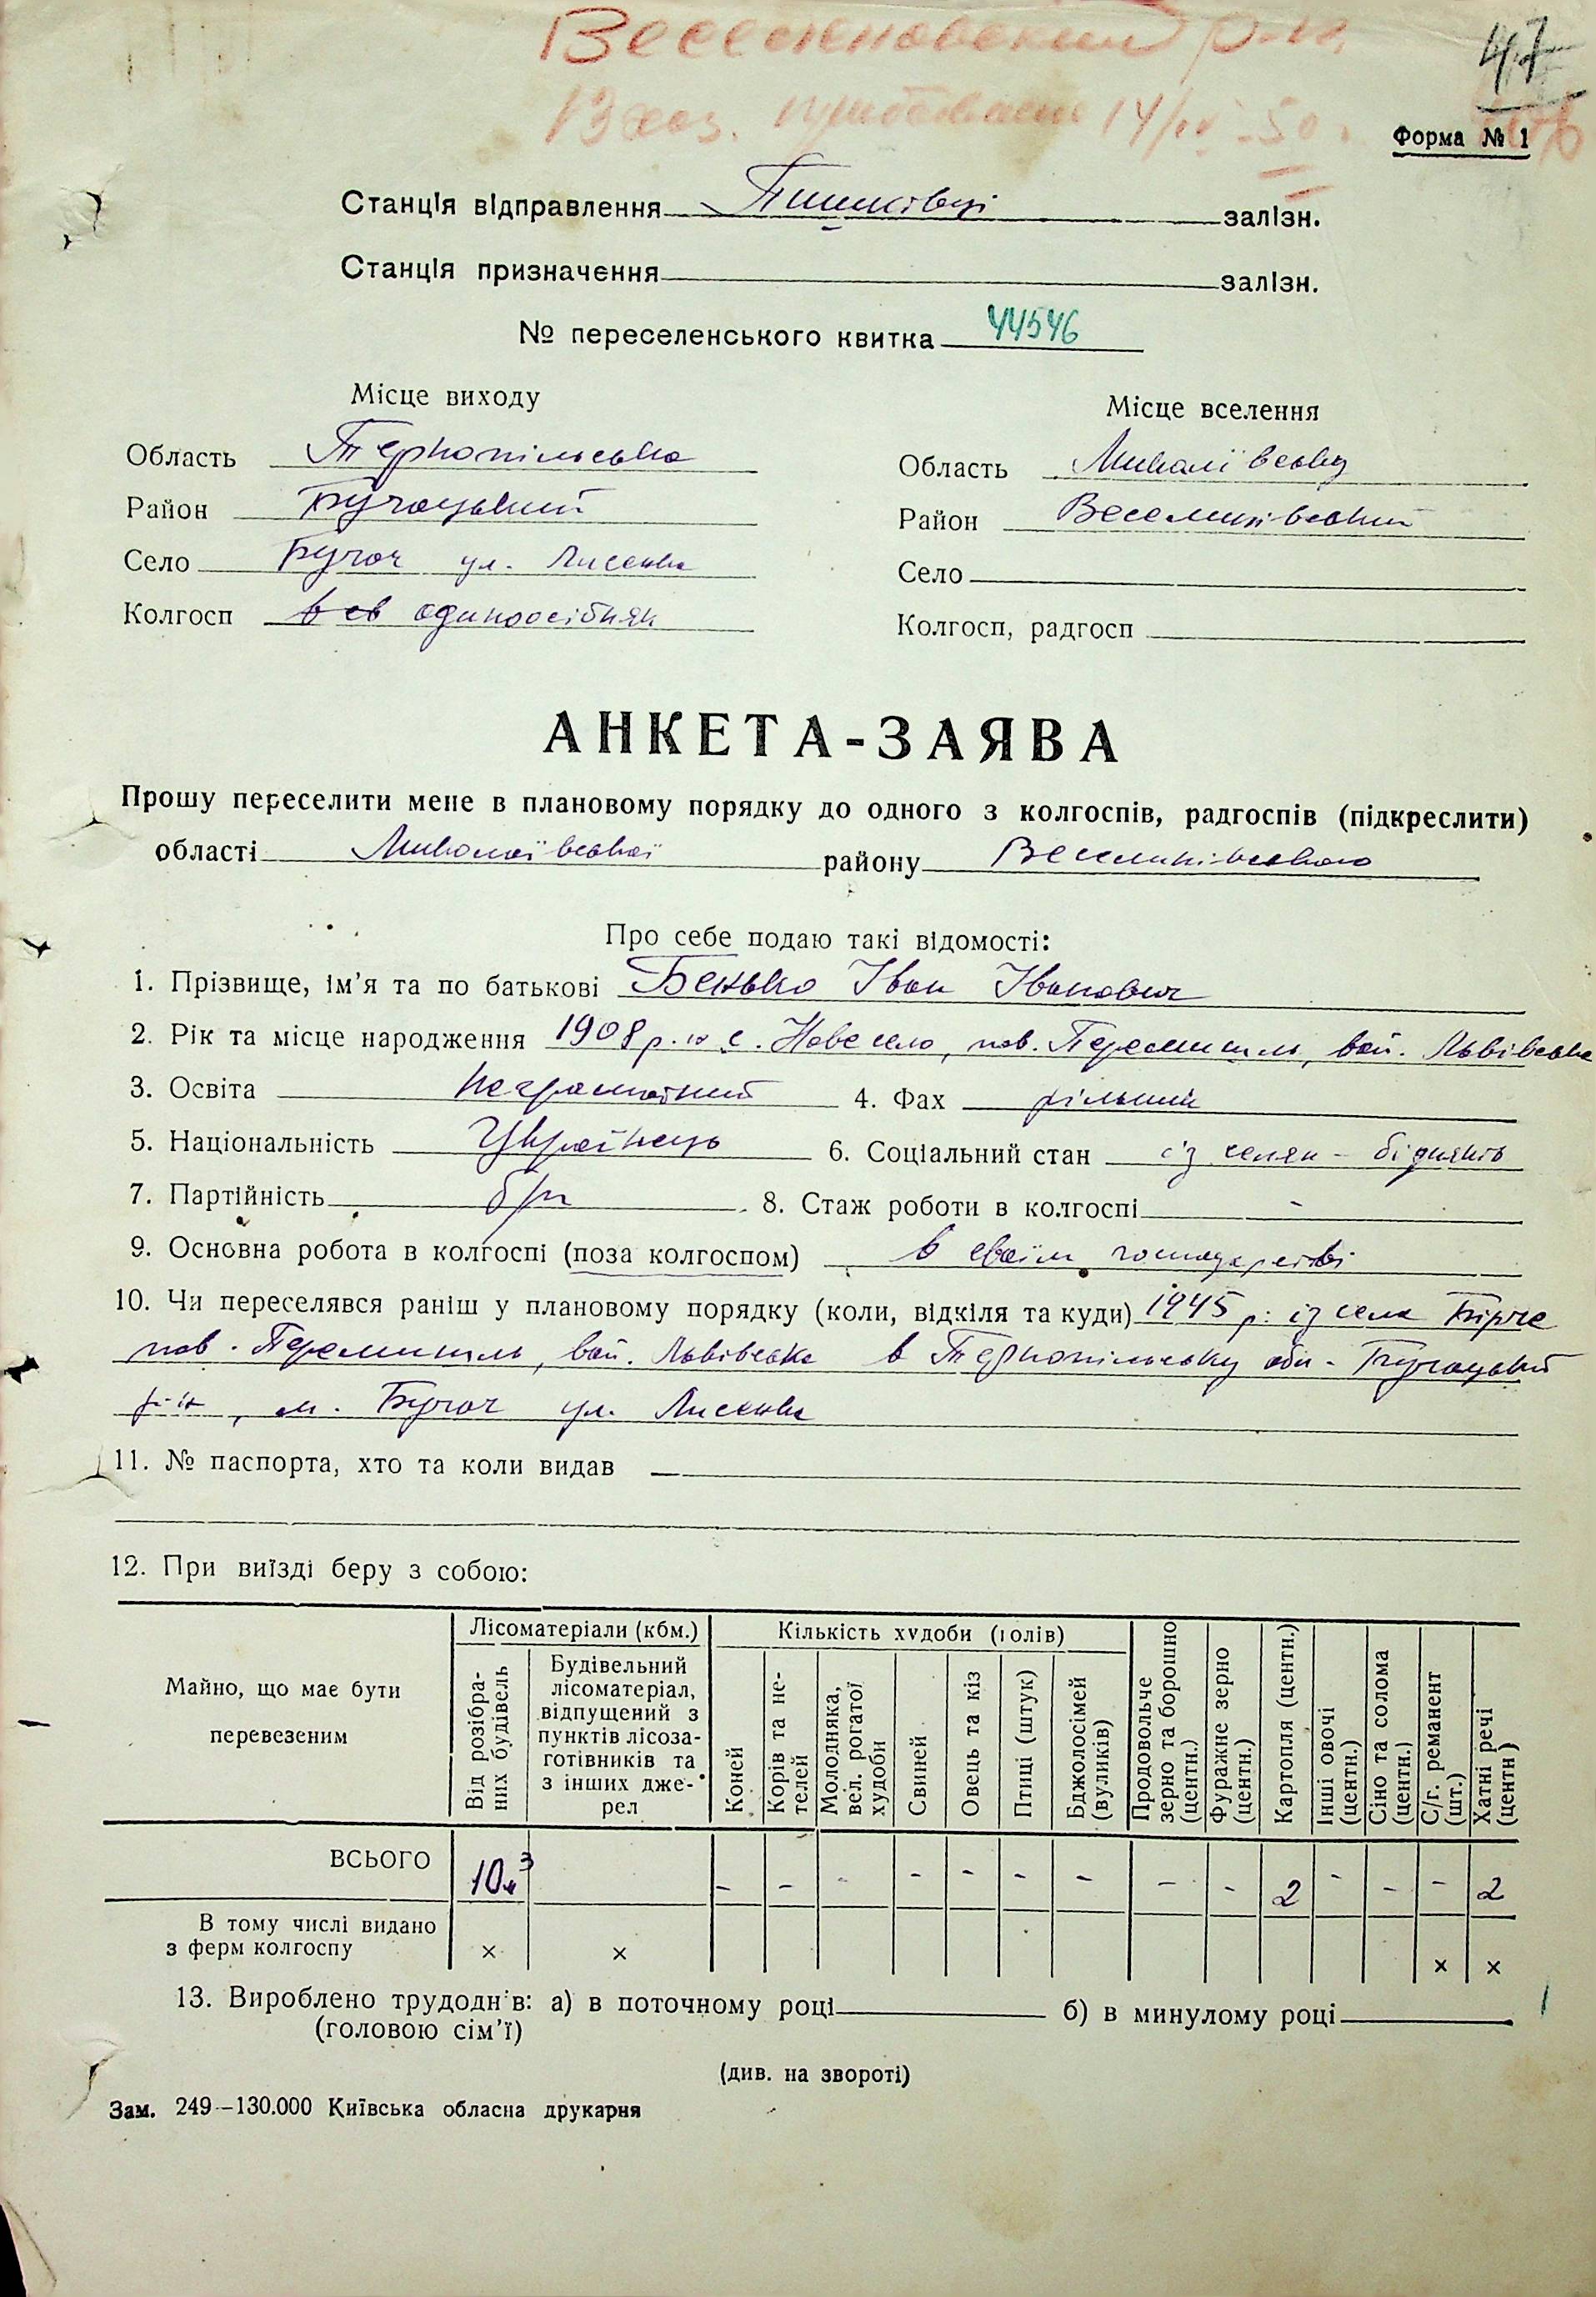 Веселиновский р-н.
47
14/IV-50
Форма № 1
Станція відправлення Пишківці залізн.
Станція призначення залізн.
№ переселенського квитка 44546
Місце виходу
Місце вселення
Область Тернопільська
Область Миколаївську
Район Бучацький
Район Веселинівський
Село Бучач ул. Лисенка
Село
Колгосп одиноосібняк
Колгосп, радгосп
АНКЕТА-ЗАЯВА
Прошу переселити мене в плановому порядку до одного з колгоспів, радгоспів (підкреслити)
області Миколаївської району Веселинівського
Про себе подаю такі відомості:
1. Прізвище, ім’я та по батькові Бенько Іван Іванович
2. Рік та місце народження 1908 р. с. Нове село, пов. Перемишль, вой. Львівське
3. Освіта неграмотний 4. Фах рільник
5. Національність Українець 6. Соціальний стан із селян - бідняків
7. Партійність б/п 8. Стаж роботи в колгоспі -
9. Основна робота в колгоспі (поза колгоспом) в своїм господарстві
10. Чи переселявся раніш у плановому порядку (коли, відкіля та куди) 1945 р. із села Бірче
пов. Перемишль, вой. Львівське в Тернопільську обл. Бучацький
р-н, м. Бучач ул. Лисенка
11. № паспорта, хто та коли видав —
12. При виїзді беру з собою:
Майно, що має бути перевезеним
Лісоматеріали (кбм.)
Кількість худоби (голів)
Від розібраних будівель
Будівельний лісоматеріал, відпущений з пунктів лісозаготівників та з інших джерел
Коней
Корів та нетелей
Молодняка, вел. рогатої худоби
Свиней
Овець та кіз
Птиці (штук)
Бджолосімей (вуликів)
Продовольче зерно та борошно (центн.)
Фуражне зерно (центн.)
Картопля (центн.)
Інші овочі (центн.)
Сіно та солома (центн.)
С/г. реманент (шт.)
Хатні речі (центн)
ВСЬОГО 10 м³ - - - - - - - - - 2 - - - 2
В тому числі видано
з ферм колгоспу × × × ×
13. Вироблено трудоднів: а) в поточному році б) в минулому році
(головою сім’ї)
(див. на звороті)
Зам. 249—130.000 Київська обласна друкарня